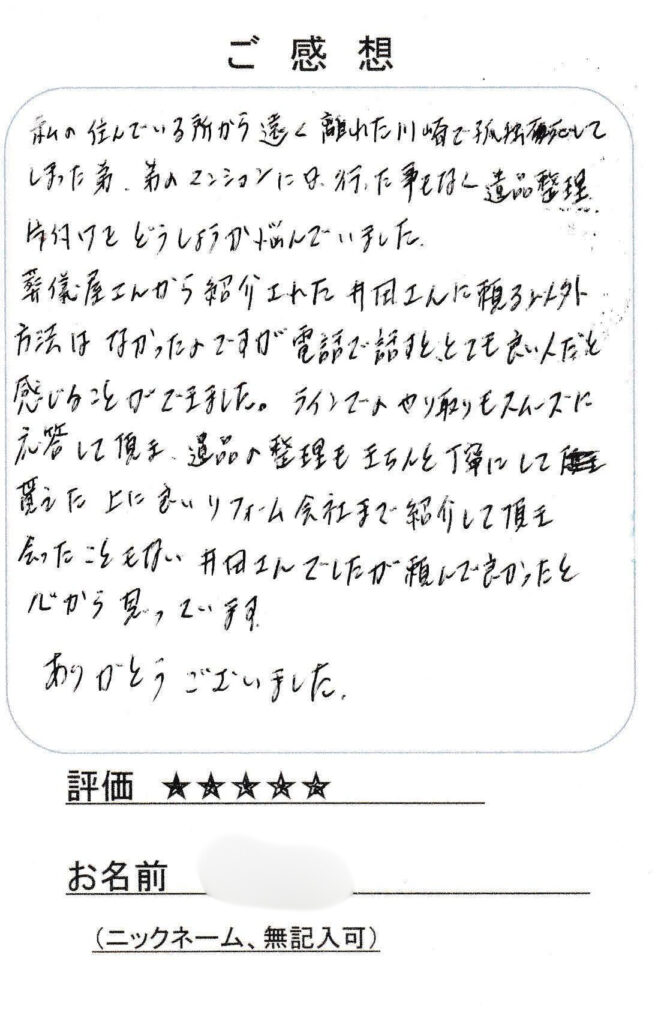 ご感想
私の住んでいる所から遠く離れた川崎で孤独死して
しまった弟、弟のマンションには、行った事もなく遺品整理
片付けをどうしようか悩んでいました。
葬儀屋さんから紹介された井田さんに頼る以外
方法はなかったのですが電話で話すと、とても良い人だと
感じることができました。ラインでのやり取りもスムーズに
応答して頂き、遺品の整理もきちんと丁寧にして
貰えた上に良いリフォーム会社まで紹介して頂き
会ったこともない井田さんでしたが頼んで良かったと
心から思っています。
ありがとうございました。
評価 ★★★★★
お名前
（ニックネーム、無記入可）